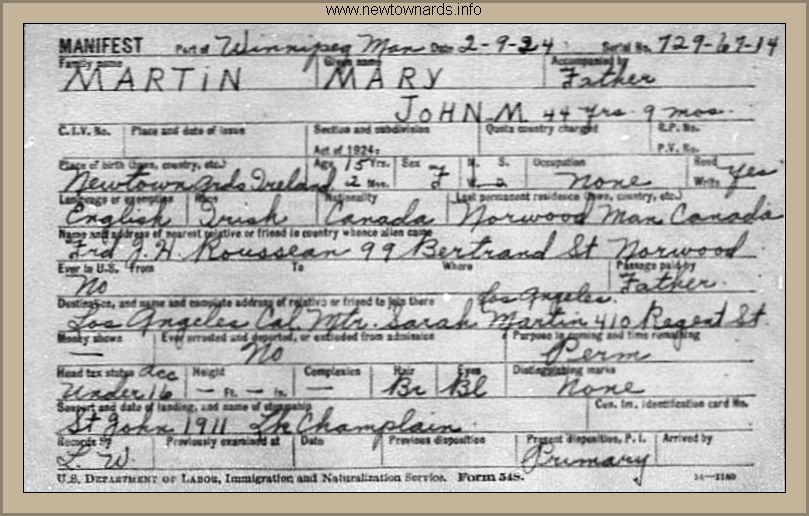 www.newtownards.info
MANIFEST Port of Winnipeg Man Date 2-9-24 Serial No. 729-67-14
Family name Given name Accompanied by
MARTIN MARY Father
JOHN M. 44 yrs. 9 mos.
C.I.V. No. Place and date of issue Section and subdivision Quota country charged R.P. No.
Act of 1924: P.V. No.
Place of birth (town, country, etc.) Age 15 Yrs. Sex M. S. Occupation Read
Newtownards Ireland 2 Mos. F W. D None Write Yes
Language or exemption Race Nationality Last permanent residence (town, country, etc.)
English Irish Canada Norwood Man Canada
Name and address of nearest relative or friend in country whence alien came
Frd J. H. Rousseau 99 Bertrand St Norwood
Ever in U.S. From To Where Passage paid by
No Father
Destination, and name and complete address of relative or friend to join there Los Angeles.
Los Angeles Cal. Mtr. Sarah Martin 410 Regent St.
Money shown Ever arrested and deported, or excluded from admission Purpose in coming and time remaining
— No Perm
Head tax status Acc Height Complexion Hair Eyes Distinguishing marks
Under 16 — Ft. — In. — Br Bl None
Seaport and date of landing, and name of steamship Can. Im. Identification card No.
St John 1911 Lk Champlain
Records by Previously examined at Date Previous disposition Present disposition, P. I. Arrived by
L. W. Primary
U.S. DEPARTMENT OF LABOR, Immigration and Naturalization Service. Form 548. 14—1160